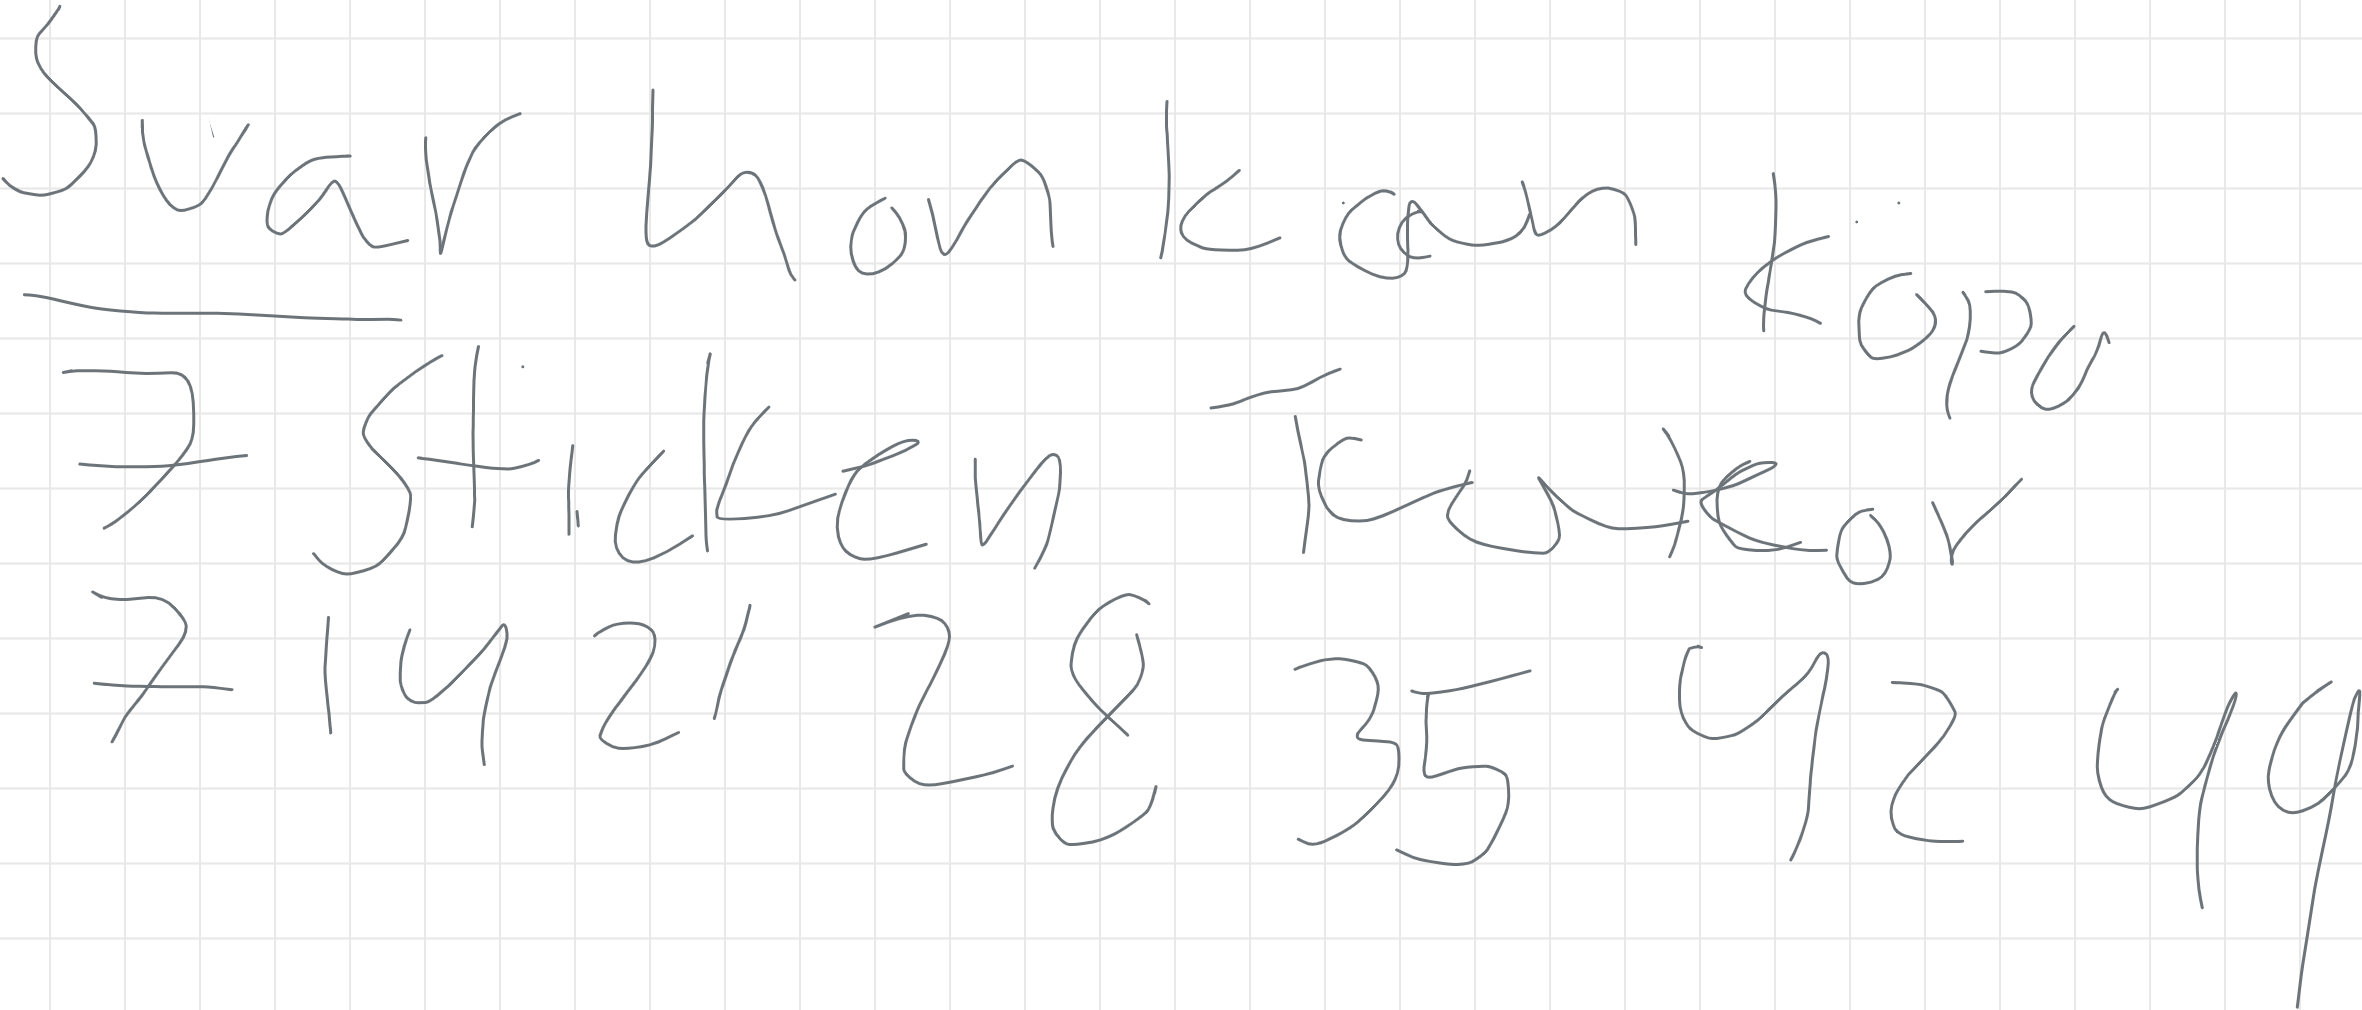 Svar hon kan köpa
7 Sticken
7 14 21 28 35 42 49